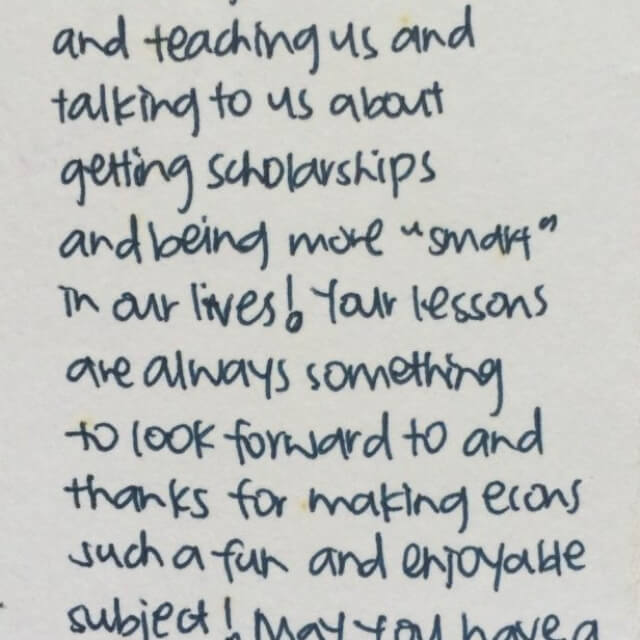 and teaching us and
talking to us about
getting scholarships
and being more "smart"
in our lives! Your lessons
are always something
to look forward to and
thanks for making econs
such a fun and enjoyable
subject! May you have a